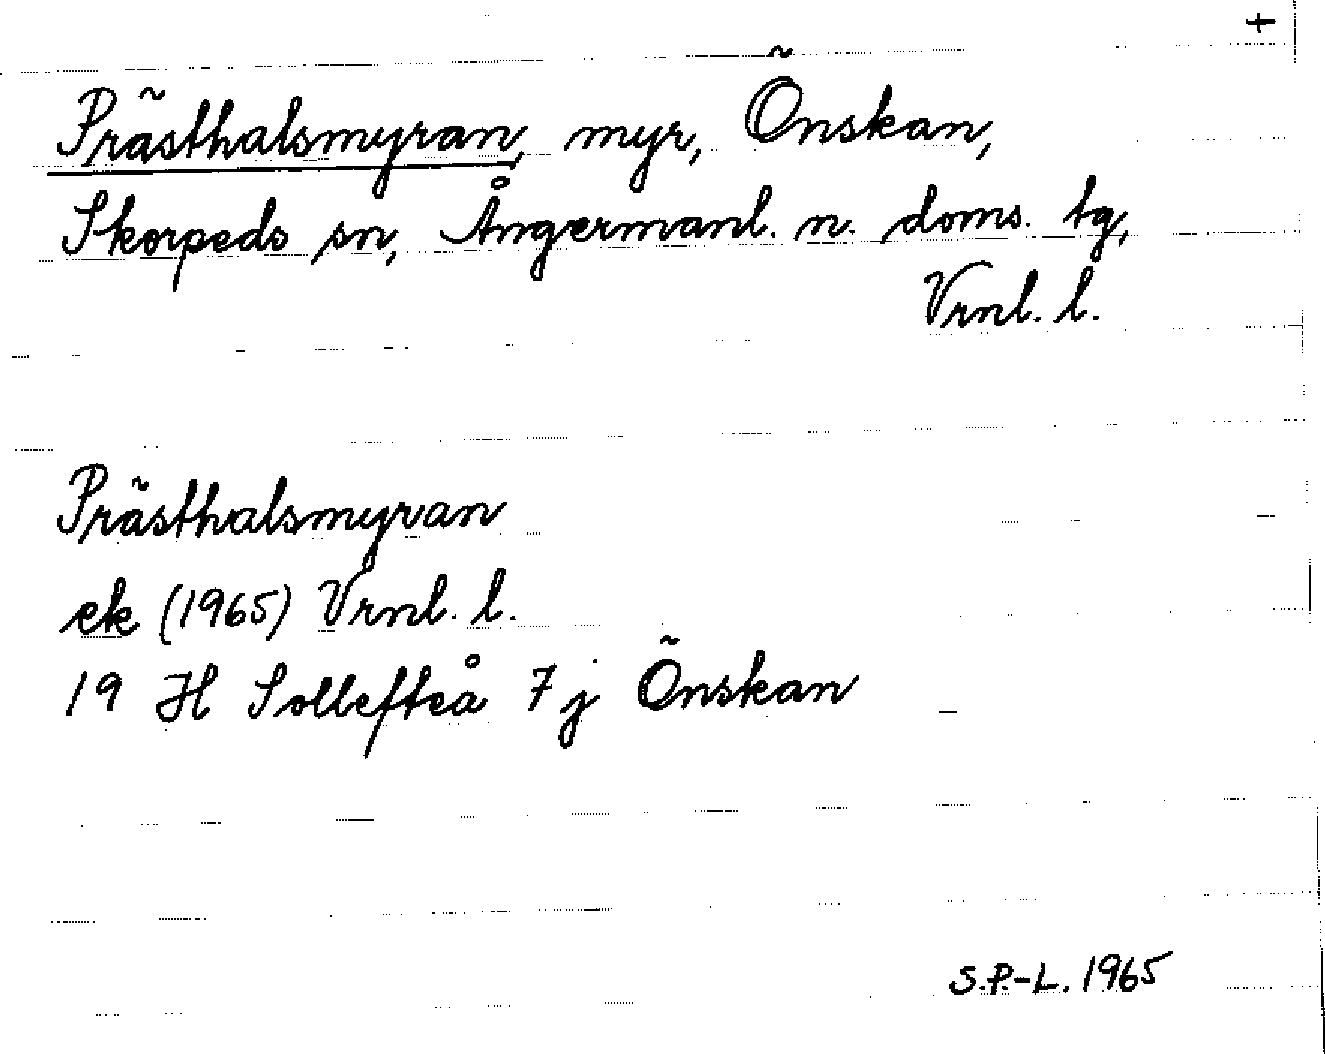 +
Prästhalsmyran, myr, Önskan,
Skorpeds sn, Ångermanl. n. doms. tg,
Vrnl. l.
Prästhalsmyran
ek (1965) Vrnl. l.
19 H Sollefteå 7 j Önskan
S.P.-L. 1965